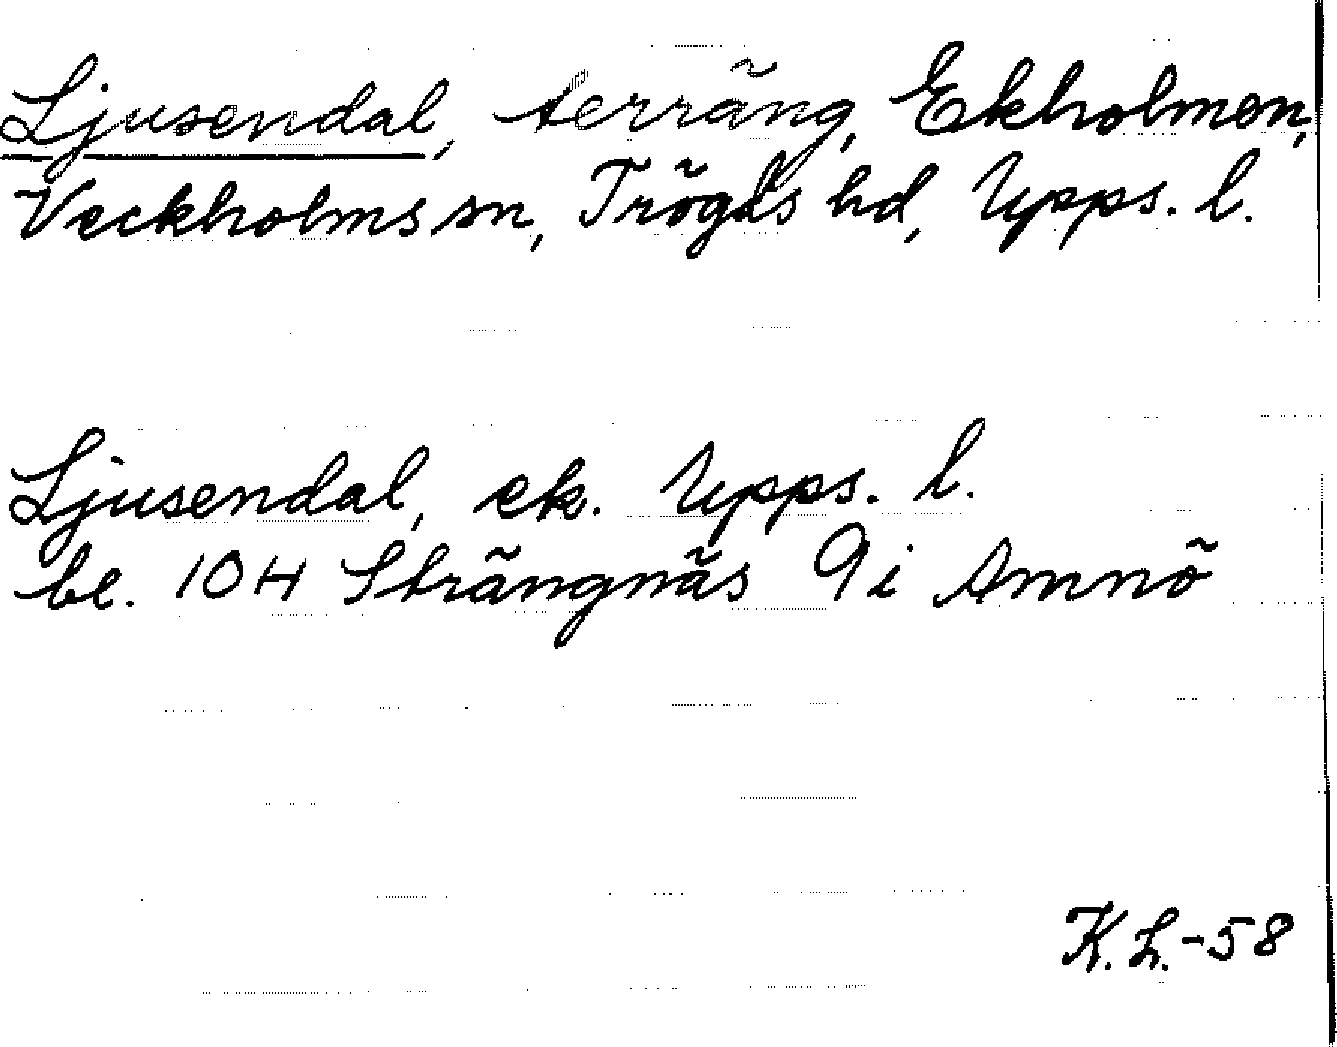 Ljusendal, terräng, Ekholmen,
Veckholms sn, Trögds hd, Upps. l.
Ljusendal, ek. Upps. l.
bl. 10H Strängnäs 9i Amnö
K.L.-58